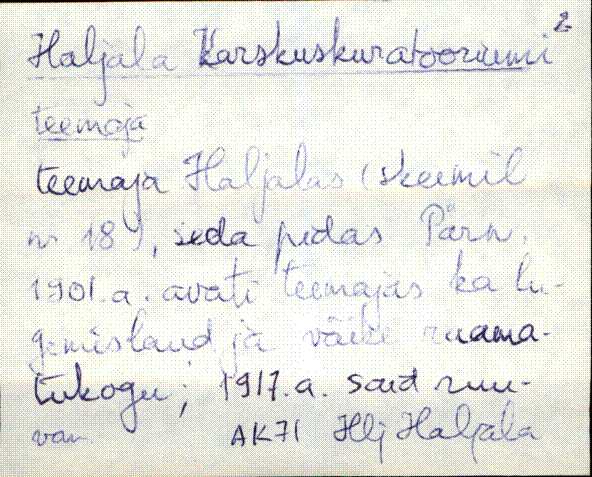 2
Haljala Karskuskuratooriumi
teemaja
teemaja Haljalas (skeemil
nr 18), seda pidas Pärn.
1901.a. avati teemajas ka lu-
gemislaud ja väike raama-
tukogu; 1917.a. said ruu-
AK71 Hlj Haljala